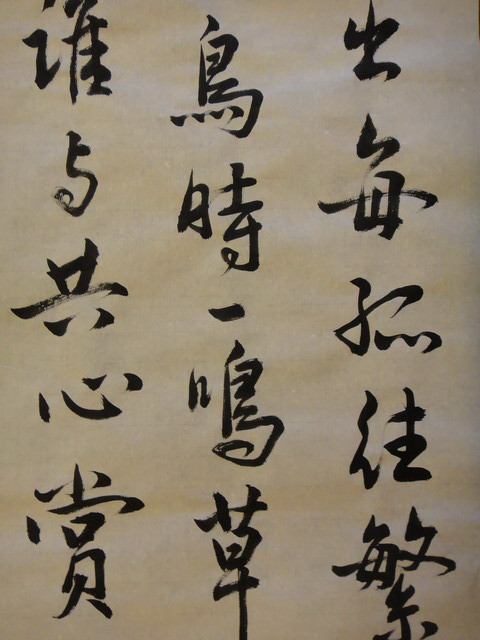 出每孤往繁
鳥時一鳴草
誰与共心賞